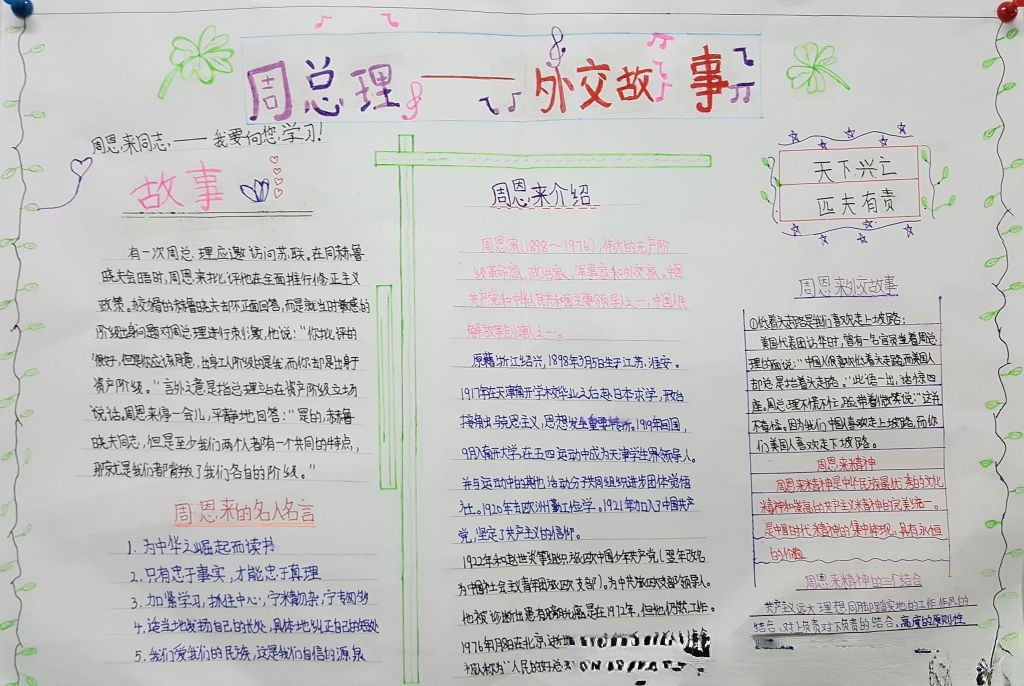 周总理——外交故事
周恩来同志,——我要向您学习!
故事
有一次周总理应邀访问苏联。在同赫鲁
晓夫会晤时,周恩来批评他在全面推行修正主义
政策。狡猾的赫鲁晓夫却不正面回答,而是就当时敏感的
阶级出身问题对周总理进行刺激,他说:“你批评的
很好,但是你应该同意,出身工人阶级的是我,而你却是出身于
资产阶级。”言外之意是指总理站在资产阶级立场
说话。周恩来停一会儿,平静地回答:“是的,赫鲁
晓夫同志,但是至少我们两个人都有一个共同的特点,
那就是我们都背叛了我们各自的阶级。”
周恩来的名人名言
1. 为中华之崛起而读书
2. 只有忠于事实,才能忠于真理
3. 加紧学习,抓住中心,宁精勿杂,宁专勿多
4. 适当地发扬自己的长处,具体地纠正自己的短处
5. 我们爱我们的民族,这是我们自信的源泉
周恩来介绍
周恩来(1898~1976),伟大的无产阶
级革命家、政治家、军事家和外交家、中国
共产党和中华人民共和国主要领导人之一,中国人民
解放军创建人之一。
原籍浙江绍兴,1898年3月5日生于江苏,淮安。
1917年在天津南开学校毕业之后赴日本求学,开始
接触马克思主义,思想发生重要转折。1919年回国,
9月入南开大学,在五四运动中成为天津学生界领导人。
并与运动中的其他活动分子共同组织进步团体觉悟
社。1920年去欧洲勤工俭学。1921年加入了中国共产
党,坚定了共产主义的信仰。
1922年和赵世炎等组织旅欧中国少年共产党(翌年改名
为中国社会主义青年团旅欧支部)。为中共旅欧支部领导人。
他被诊断出患有膀胱癌是在1972年,但他仍然工作。
1976年1月8日在北京逝世
被人称为“人民的好总理
天下兴亡
匹夫有责
周恩来外交故事
①低着头走路是我们喜欢走上坡路:
美国代表团访华时,曾有一名官员当着周总
理的面说:“中国人很喜欢低着头走路,而美国人
却总是抬着头走路。”此话一出,话惊四
座。周总理不慌不忙,面带着微笑说:“这并
不奇怪。因为我们中国喜欢走上坡路,而你
们美国人喜欢走下坡路。
周恩来精神
周恩来精神是中华民族最优秀的文化
精神和崇高的共产主义精神的完美统一。
是中国时代精神的集中体现,具有永恒
的价值
周恩来精神的三个结合
共产主义远大理想同脚踏实地的工作作风的
结合、对上负责对下负责的结合,高度的原则性